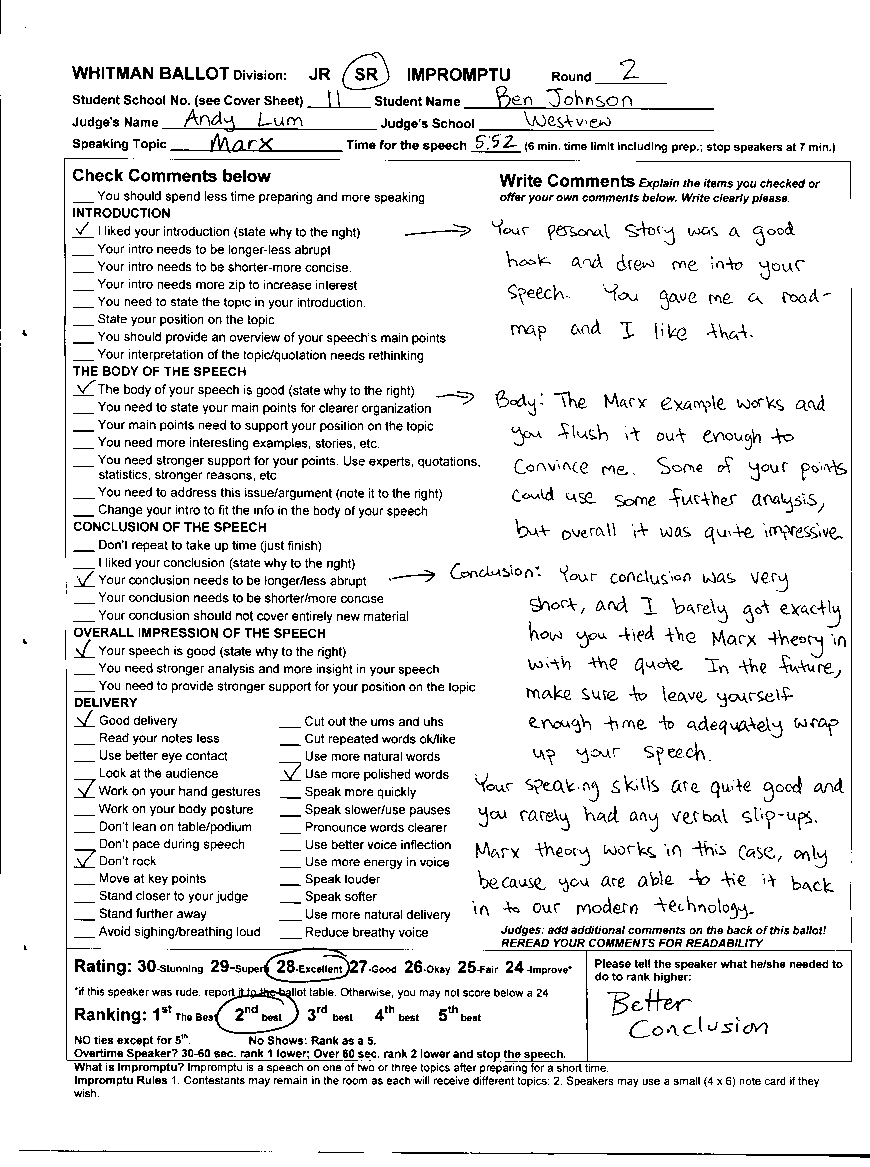 WHITMAN BALLOT Division: JR SR IMPROMPTU Round 2
Student School No. (see Cover Sheet) 11 Student Name Ben Johnson
Judge's Name Andy Lum Judge's School Westview
Speaking Topic Marx Time for the speech 5:52 (6 min. time limit including prep.; stop speakers at 7 min.)
Check Comments below
___ You should spend less time preparing and more speaking
INTRODUCTION
✓ I liked your introduction (state why to the right)
___ Your intro needs to be longer-less abrupt
___ Your intro needs to be shorter-more concise.
___ Your intro needs more zip to increase interest
___ You need to state the topic in your introduction.
___ State your position on the topic
___ You should provide an overview of your speech's main points
___ Your interpretation of the topic/quotation needs rethinking
THE BODY OF THE SPEECH
✓ The body of your speech is good (state why to the right)
___ You need to state your main points for clearer organization
___ Your main points need to support your position on the topic
___ You need more interesting examples, stories, etc.
___ You need stronger support for your points. Use experts, quotations,
statistics, stronger reasons, etc
___ You need to address this issue/argument (note it to the right)
___ Change your intro to fit the info in the body of your speech
CONCLUSION OF THE SPEECH
___ Don't repeat to take up time (just finish)
___ I liked your conclusion (state why to the right)
✓ Your conclusion needs to be longer/less abrupt
___ Your conclusion needs to be shorter/more concise
___ Your conclusion should not cover entirely new material
OVERALL IMPRESSION OF THE SPEECH
✓ Your speech is good (state why to the right)
___ You need stronger analysis and more insight in your speech
___ You need to provide stronger support for your position on the topic
DELIVERY
✓ Good delivery ___ Cut out the ums and uhs
___ Read your notes less ___ Cut repeated words ok/like
___ Use better eye contact ___ Use more natural words
___ Look at the audience ✓ Use more polished words
✓ Work on your hand gestures ___ Speak more quickly
___ Work on your body posture ___ Speak slower/use pauses
___ Don't lean on table/podium ___ Pronounce words clearer
___ Don't pace during speech ___ Use better voice inflection
✓ Don't rock ___ Use more energy in voice
___ Move at key points ___ Speak louder
___ Stand closer to your judge ___ Speak softer
___ Stand further away ___ Use more natural delivery
___ Avoid sighing/breathing loud ___ Reduce breathy voice
Write Comments Explain the items you checked or
offer your own comments below. Write clearly please.
Your personal story was a good
hook and drew me into your
speech. You gave me a road-
map and I like that.
Body: The Marx example works and
you flush it out enough to
convince me. Some of your points
could use some further analysis,
but overall it was quite impressive
Conclusion: Your conclusion was very
short, and I barely got exactly
how you tied the Marx theory in
with the quote. In the future,
make sure to leave yourself
enough time to adequately wrap
up your speech.
Your speaking skills are quite good and
you rarely had any verbal slip-ups.
Marx theory works in this case, only
because you are able to tie it back
in to our modern technology.
Judges: add additional comments on the back of this ballot!
REREAD YOUR COMMENTS FOR READABILITY
Rating: 30-Stunning 29-Superb 28-Excellent 27-Good 26-Okay 25-Fair 24-Improve*
*if this speaker was rude, report it to the ballot table. Otherwise, you may not score below a 24
Ranking: 1st The Best 2nd best 3rd best 4th best 5th best
NO ties except for 5th. No Shows: Rank as a 5.
Overtime Speaker? 30-60 sec. rank 1 lower; Over 60 sec. rank 2 lower and stop the speech.
Please tell the speaker what he/she needed to
do to rank higher:
Better
Conclusion
What is Impromptu? Impromptu is a speech on one of two or three topics after preparing for a short time.
Impromptu Rules 1. Contestants may remain in the room as each will receive different topics: 2. Speakers may use a small (4 x 6) note card if they
wish.